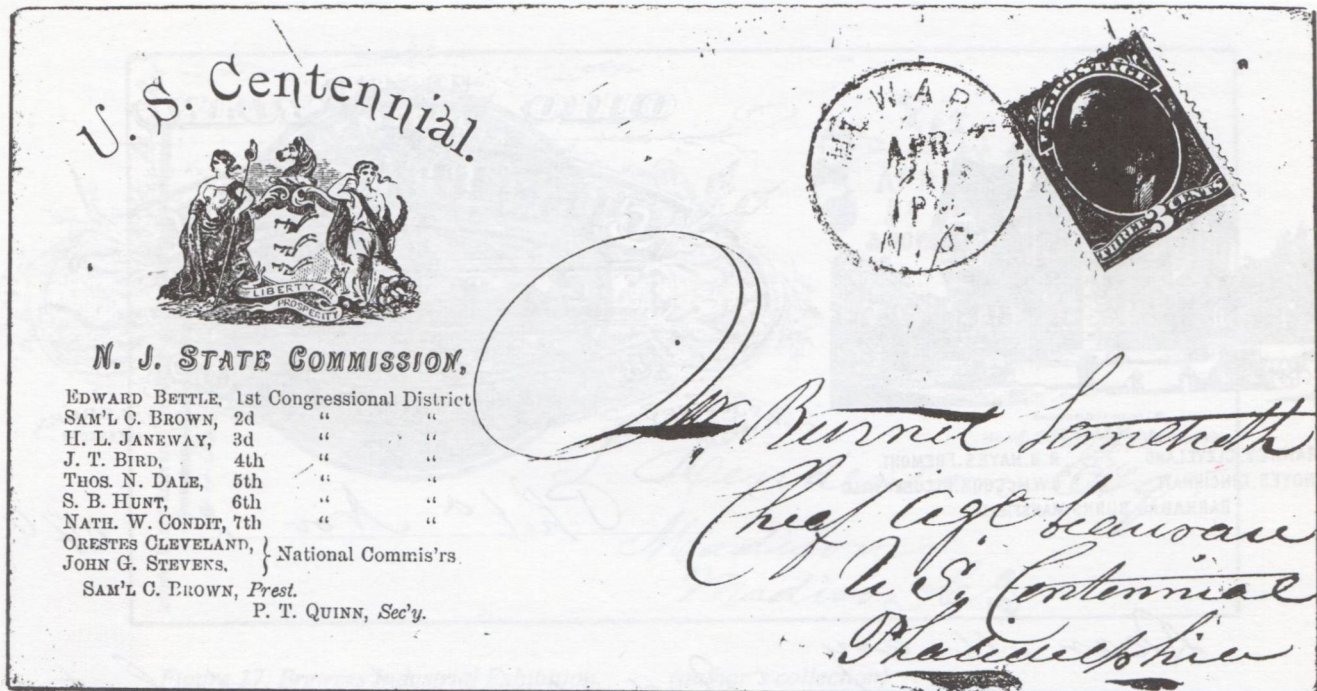 U. S. Centennial.
LIBERTY AND
PROSPERITY
N. J. STATE COMMISSION,
EDWARD BETTLE, 1st Congressional District
SAM'L C. BROWN, 2d " "
H. L. JANEWAY, 3d " "
J. T. BIRD, 4th " "
THOS. N. DALE, 5th " "
S. B. HUNT, 6th " "
NATH. W. CONDIT, 7th " "
ORESTES CLEVELAND,
JOHN G. STEVENS, } National Commis'rs
SAM'L C. BROWN, Prest.
P. T. QUINN, Sec'y.
NEWARK
APR
N.J.
U.S. POSTAGE
THREE 3 CENTS
Burnet Landreth
Chief Ag. bureau
U.S. Centennial
Philadelphia